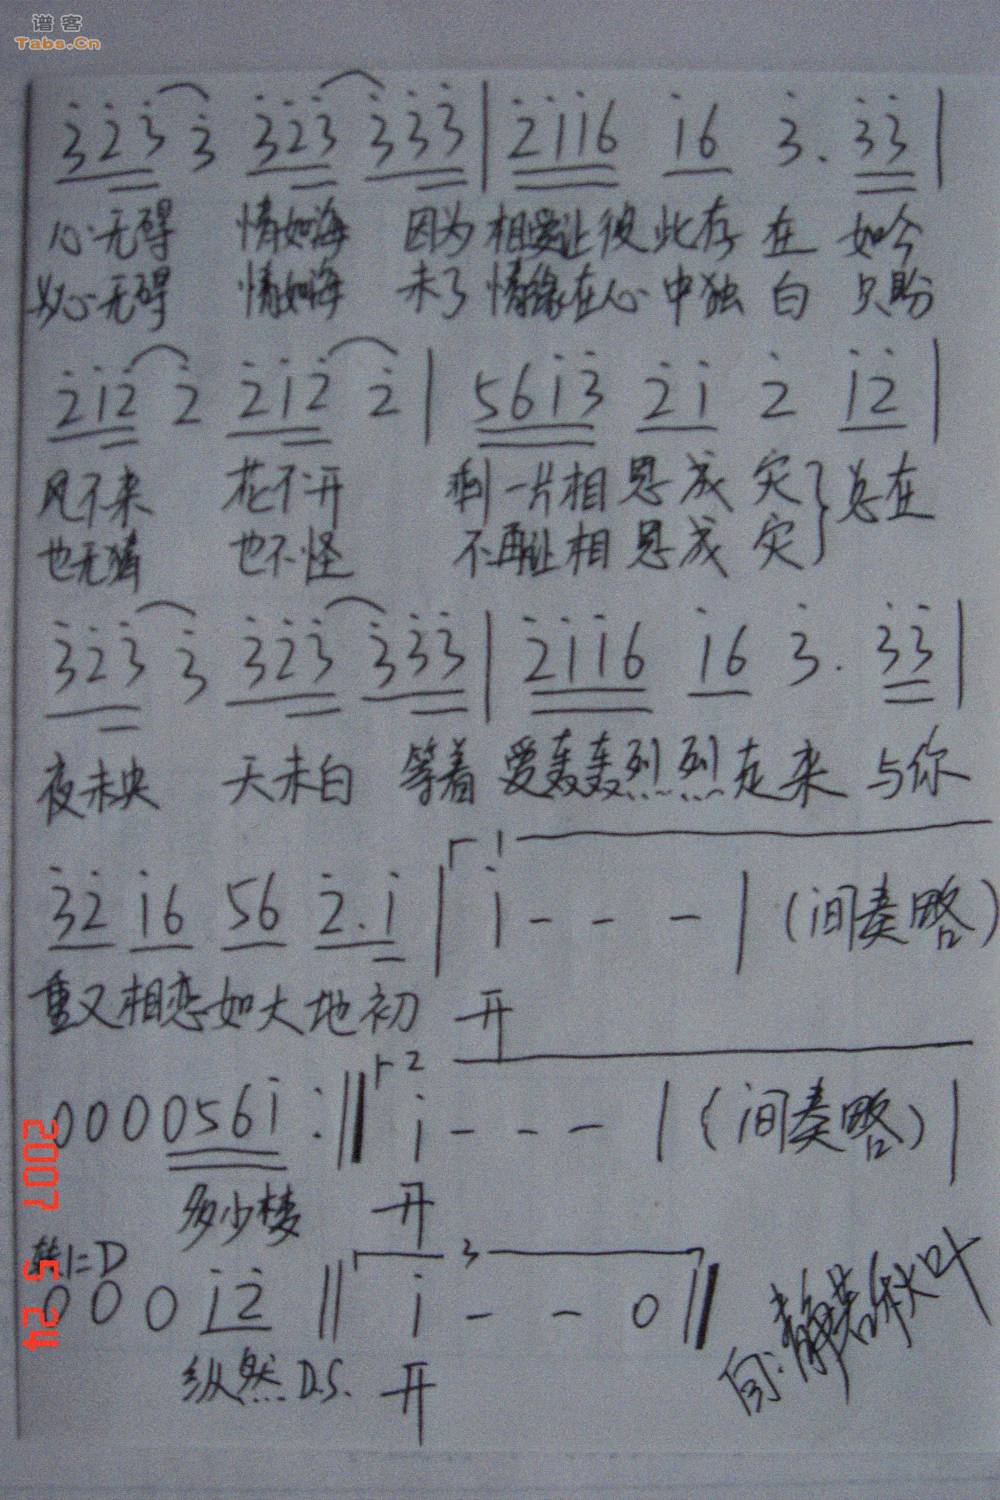 谱客
Tabs.Cn
3 2 3 3 3 2 3 3 3 3 | 2 1 1 6 1 6 3 . 3 3 |
心无碍 情如海 因为 相爱让彼此存在 如今
心无碍 情如海 未了 情缘在心中独白 只盼
2 1 2 2 2 1 2 2 | 5 6 1 3 2 1 2 1 2 |
风不来 花不开 剩一片相思成灾 } 总在
也无猜 也不怪 不再让相思成灾
3 2 3 3 3 2 3 3 3 3 | 2 1 1 6 1 6 3 . 3 3 |
夜未央 天未白 等着 爱轰轰烈烈走来 与你
1
3 2 1 6 5 6 2 . 1 | 1 - - - | (间奏略)
重又相恋如大地初 开
2
0 0 0 0 5 6 1 :‖ 1 - - - | (间奏略) |
多少楼 开
转1=D
3
0 0 0 1 2 ‖ 1 - - 0 ‖
纵然 D.S. 开
静若秋叶
2007 5 24